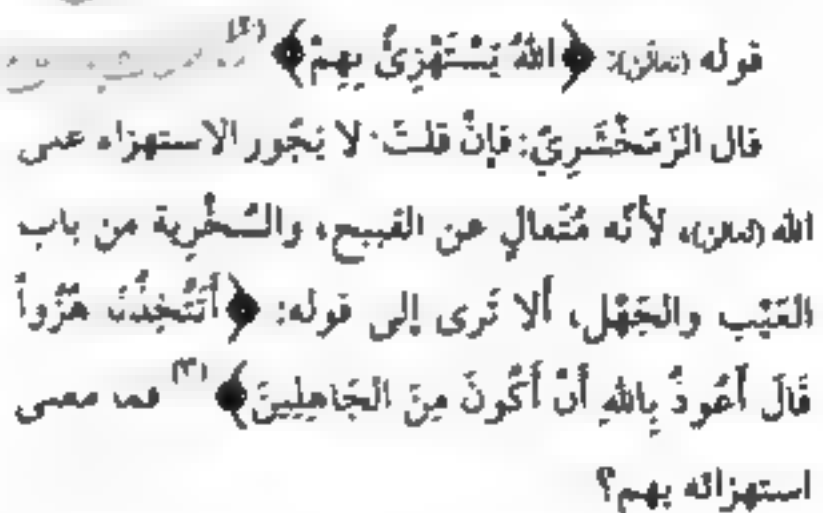 قوله (تعالى): ﴿اللهُ يَسْتَهْزِئُ بِهِمْ﴾ (٢)
قال الزَّمَخْشَرِيّ: فإنْ قلتَ: لا يَجُوز الاستهزاء على
الله (تعالى)، لأنّه مُتَعالٍ عن القبيح، والسُّخْرِية من باب
العَيْب والجَهْل، ألا تَرى إلى قوله: ﴿أَتَتَّخِذُنَا هُزُواً
قَالَ أَعُوذُ بِاللهِ أَنْ أَكُونَ مِنَ الجَاهِلِينَ﴾ (٣) فما معنى
استهزائه بهم؟